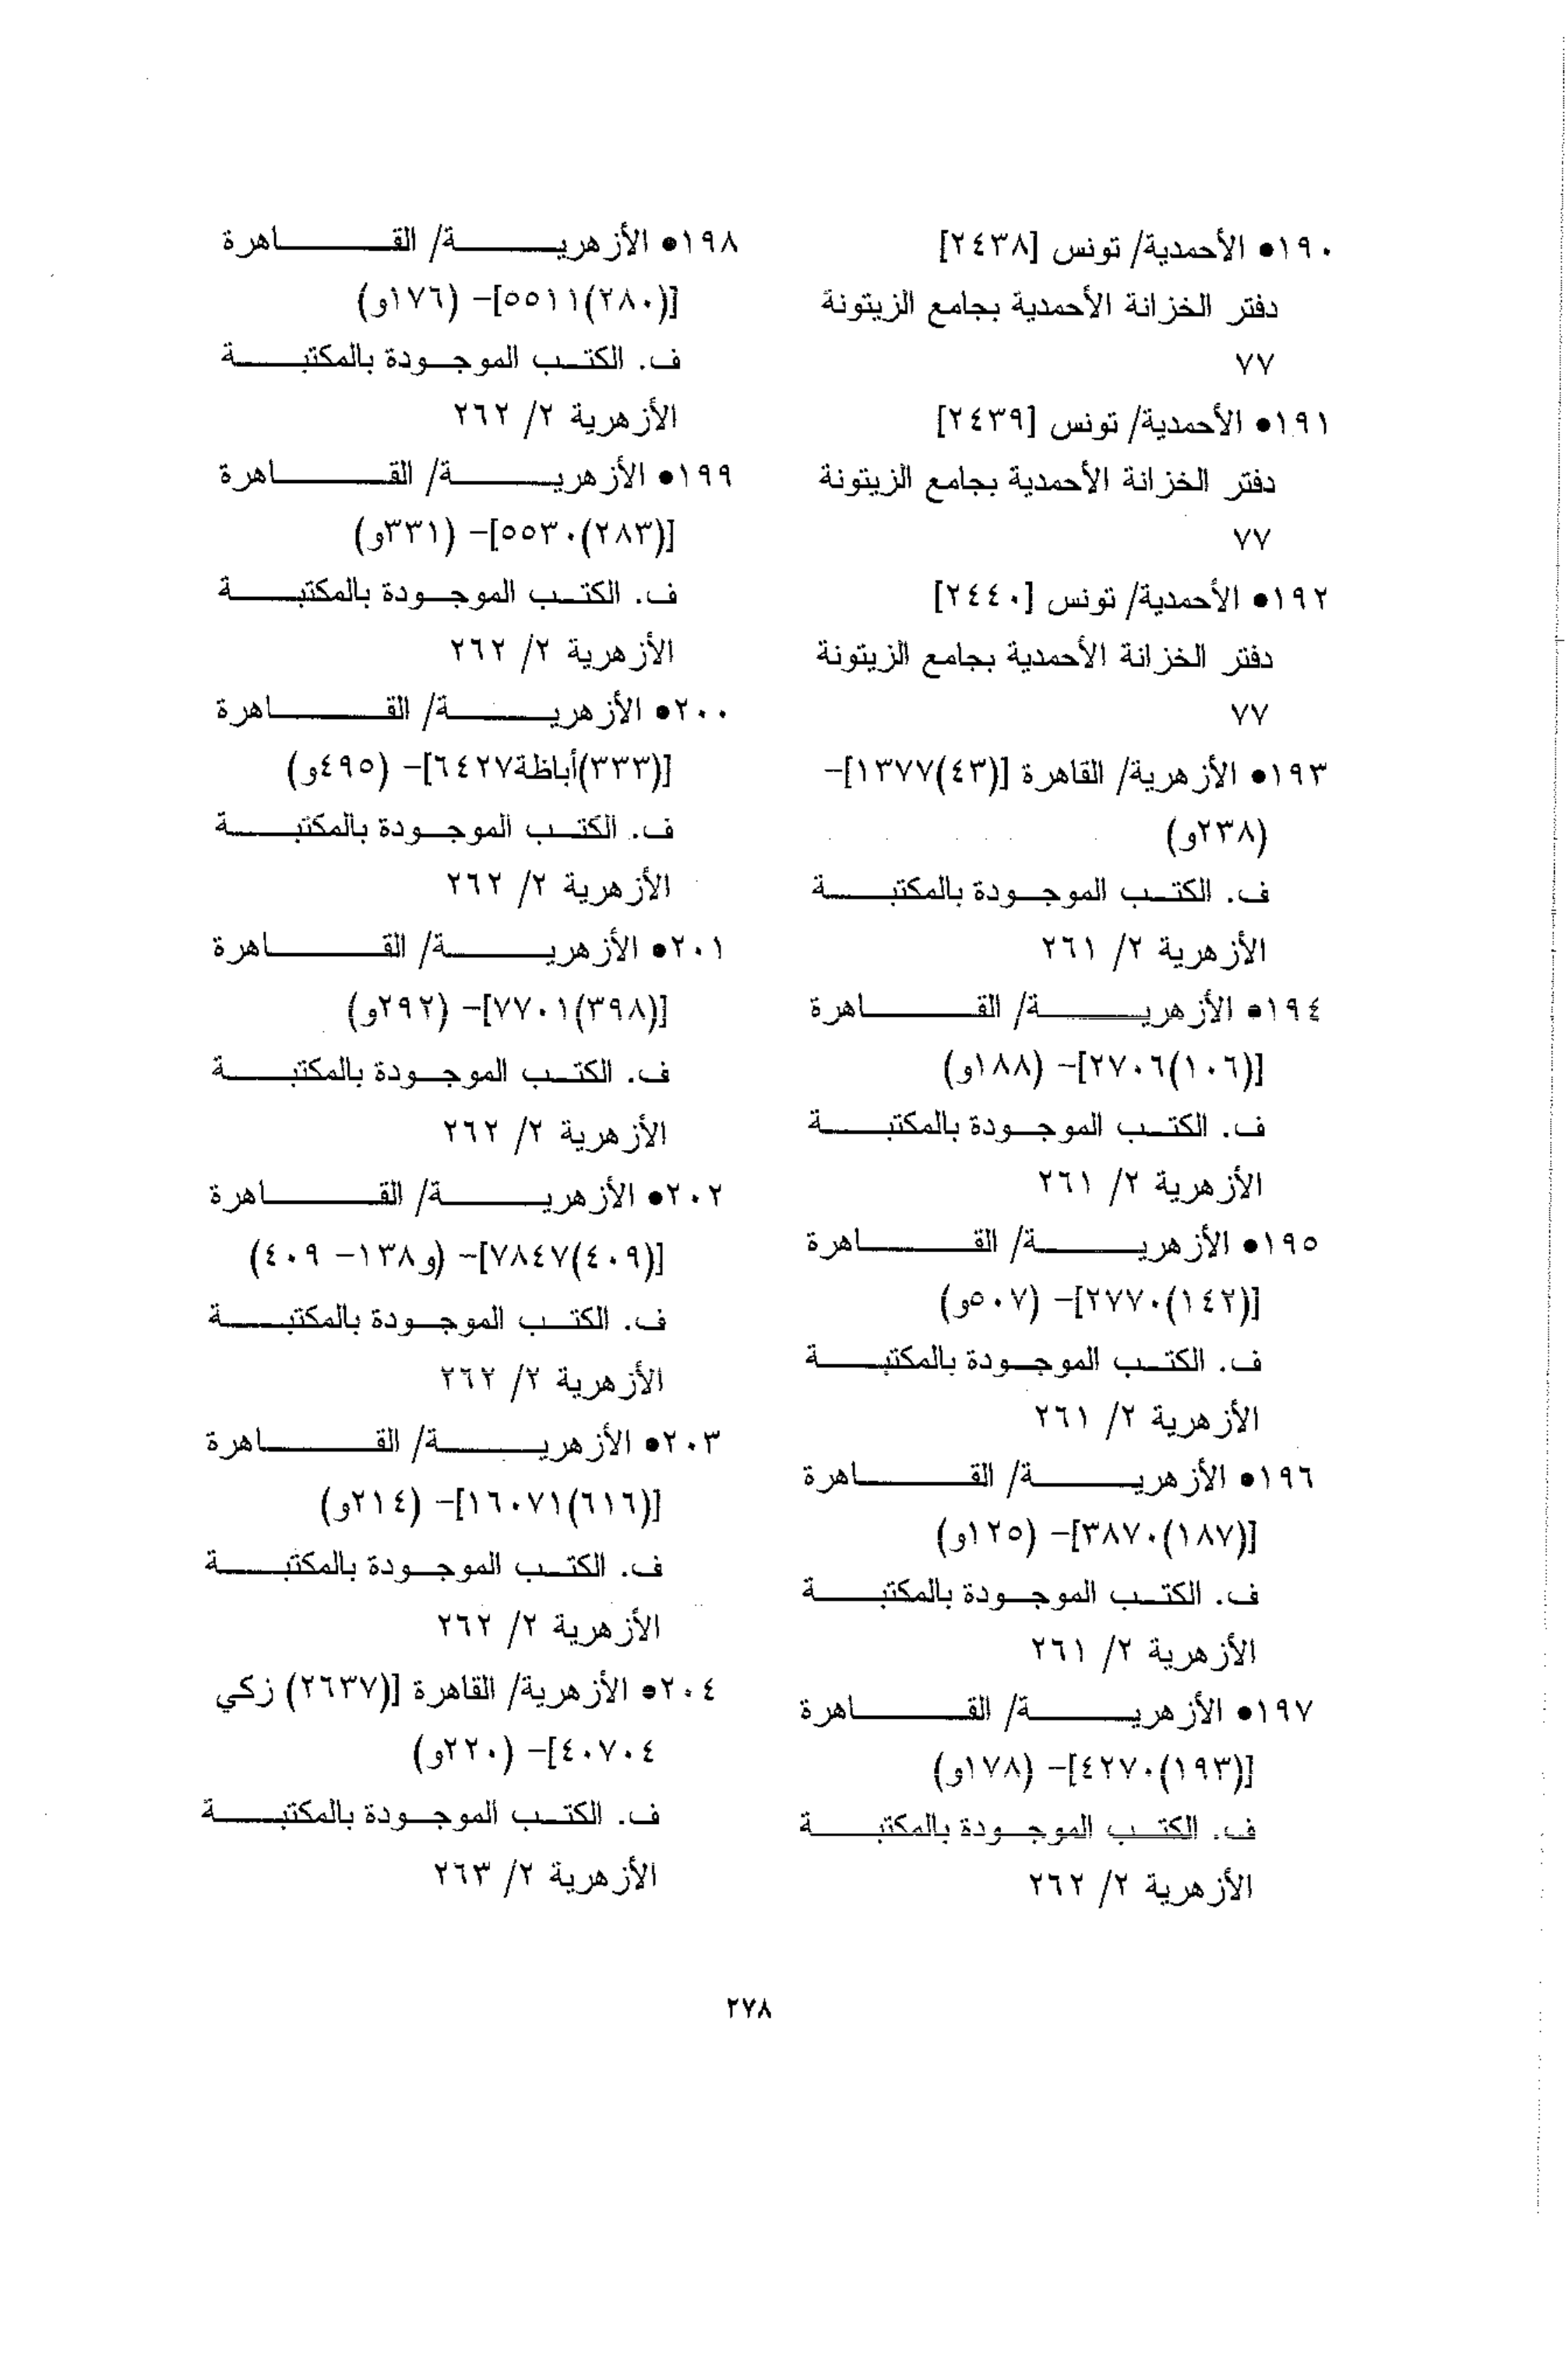 ١٩٠• الأحمدية/ تونس [٢٤٣٨]
دفتر الخزانة الأحمدية بجامع الزيتونة
٧٧
١٩١• الأحمدية/ تونس [٢٤٣٩]
دفتر الخزانة الأحمدية بجامع الزيتونة
٧٧
١٩٢• الأحمدية/ تونس [٢٤٤٠]
دفتر الخزانة الأحمدية بجامع الزيتونة
٧٧
١٩٣• الأزهرية/ القاهرة [(٤٣)١٣٧٧]-
(٢٣٨و)
ف. الكتب الموجودة بالمكتبة
الأزهرية ٢/ ٢٦١
١٩٤• الأزهرية/ القاهرة
[(١٠٦)٢٧٠٦]- (١٨٨و)
ف. الكتب الموجودة بالمكتبة
الأزهرية ٢/ ٢٦١
١٩٥• الأزهرية/ القاهرة
[(١٤٢)٢٧٧٠]- (٥٠٧و)
ف. الكتب الموجودة بالمكتبة
الأزهرية ٢/ ٢٦١
١٩٦• الأزهرية/ القاهرة
[(١٨٧)٣٨٧٠]- (١٢٥و)
ف. الكتب الموجودة بالمكتبة
الأزهرية ٢/ ٢٦١
١٩٧• الأزهرية/ القاهرة
[(١٩٣)٤٢٧٠]- (١٧٨و)
ف. الكتب الموجودة بالمكتبة
الأزهرية ٢/ ٢٦٢
١٩٨• الأزهرية/ القاهرة
[(٢٨٠)٥٥١١]- (١٧٦و)
ف. الكتب الموجودة بالمكتبة
الأزهرية ٢/ ٢٦٢
١٩٩• الأزهرية/ القاهرة
[(٢٨٣)٥٥٣٠]- (٣٣١و)
ف. الكتب الموجودة بالمكتبة
الأزهرية ٢/ ٢٦٢
٢٠٠• الأزهرية/ القاهرة
[(٣٣٣)أباظة٦٤٢٧]- (٤٩٥و)
ف. الكتب الموجودة بالمكتبة
الأزهرية ٢/ ٢٦٢
٢٠١• الأزهرية/ القاهرة
[(٣٩٨)٧٧٠١]- (٢٩٢و)
ف. الكتب الموجودة بالمكتبة
الأزهرية ٢/ ٢٦٢
٢٠٢• الأزهرية/ القاهرة
[(٤٠٩)٧٨٤٧]- (و١٣٨- ٤٠٩)
ف. الكتب الموجودة بالمكتبة
الأزهرية ٢/ ٢٦٢
٢٠٣• الأزهرية/ القاهرة
[(٦١٦)١٦٠٧١]- (٢١٤و)
ف. الكتب الموجودة بالمكتبة
الأزهرية ٢/ ٢٦٢
٢٠٤• الأزهرية/ القاهرة [(٢٦٣٧) زكي
٤٠٧٠٤]- (٢٢٠و)
ف. الكتب الموجودة بالمكتبة
الأزهرية ٢/ ٢٦٣
٢٧٨